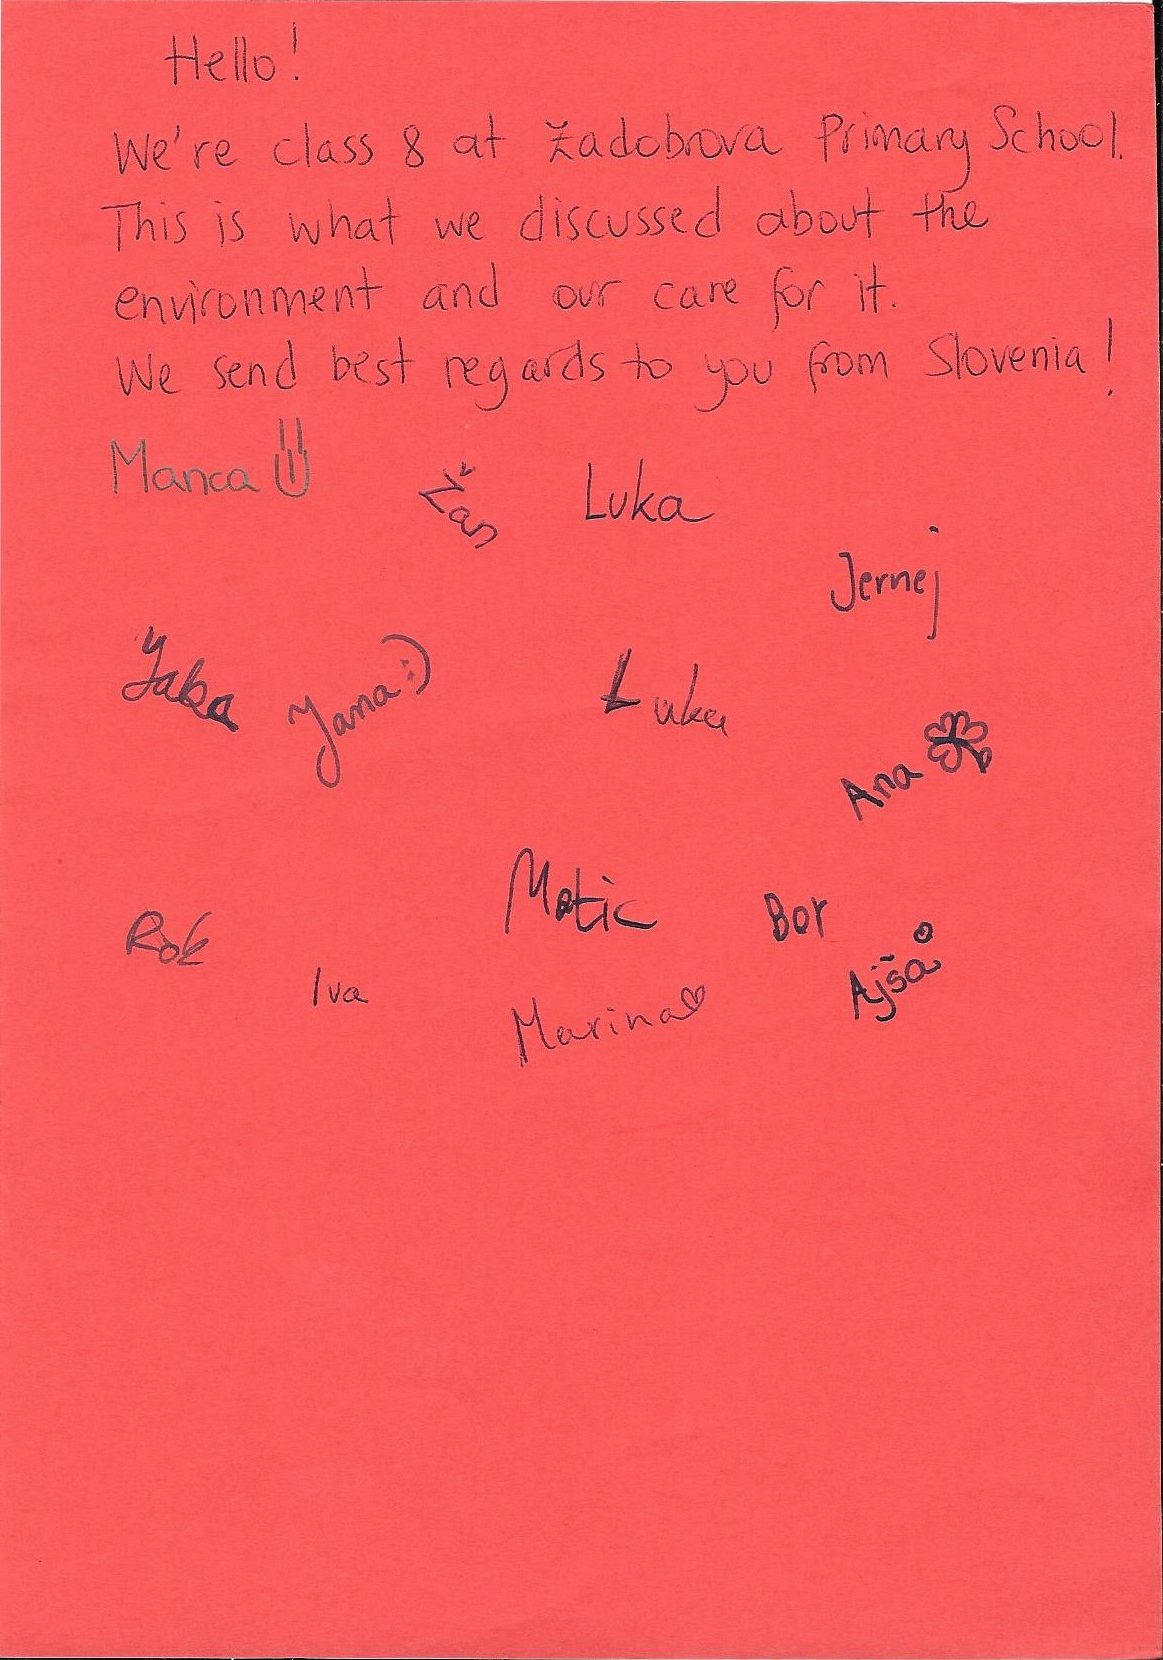 Hello!
We're class 8 at Zadobrova Primary School.
This is what we discussed about the
environment and our care for it.
We send best regards to you from Slovenia!
Manca
Žan
Luka
Jernej
Jaka
Jana :)
Luka
Ana
Matic
Rok
Bor
Iva
Marina
Ajša